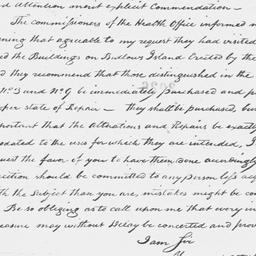 d attention most explicit Commendation —
The commissioners of the Health Office informed m
ning that agreable to my request they had visited
d the Buildings on Bedlows Island Erected by the
d they recommend that those distinguished in the
No 3 and No 9 be immediately purchased and p
per state of Repair — they shall be purchased, but
portant that the Alterations and Repairs be exactly
odated to the uses for which they are intended, I
uest the favor of you to have them done accordingly
ection should be committed to any person less acq
th the Subject than you are, mistakes might be co
Be so obliging as to call upon me that every m
easure may without delay be concerted and prov
I am Sir